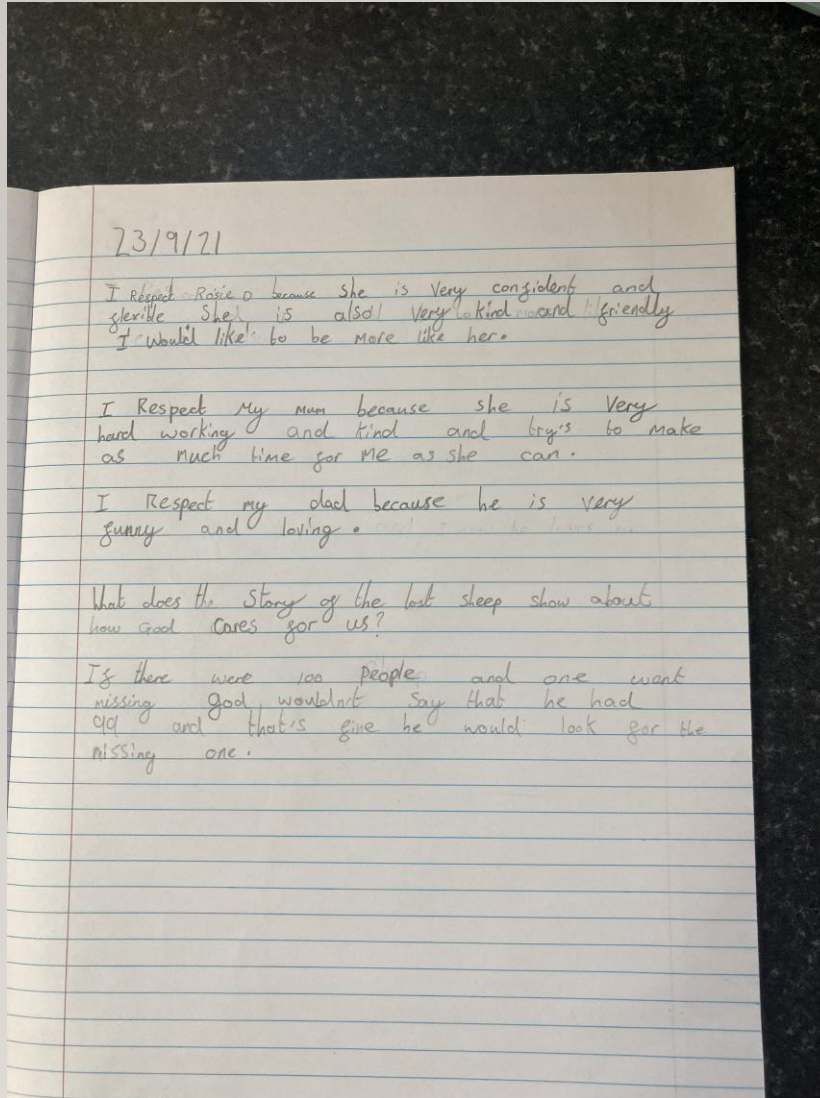 23/9/21
I Respect Rosie D because She is Very confident and
flexible She is also Very kind and friendly
I would like to be more like her.
I Respect My Mum because she is Very
hard working and kind and try's to make
as much time for me as she can.
I Respect my dad because he is very
funny and loving.
What does the Story of the lost sheep show about
how God Cares for us?
If there were 100 People and one went
missing god wouldn't Say that he had
99 and that's fine he would look for the
missing one.